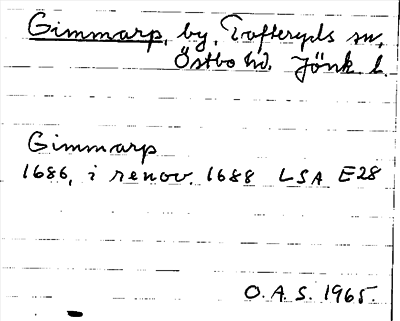 Gimmarp, by, Tofteryds sn,
Östbo hd. Jönk. l.
Gimmarp
1686, i renov. 1688 LSA E28
O.A.S. 1965.